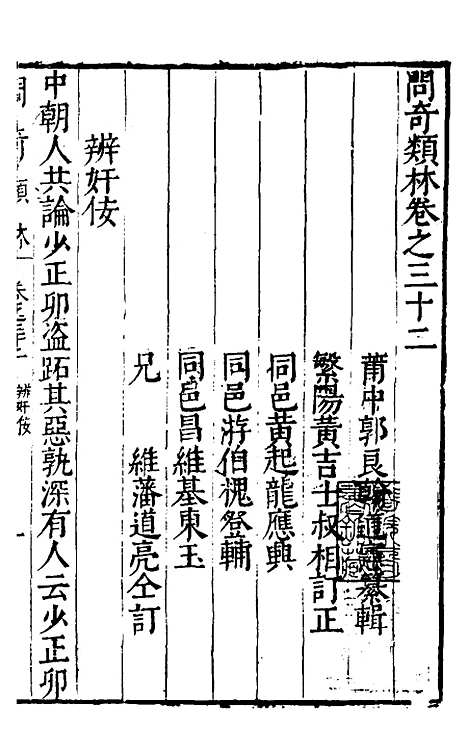 問奇類林卷之三十二
莆中郭良翰道憲纂輯
繁陽黃吉士叔相訂正
同邑黃起龍應興
同邑游伯槐登輔
同邑昌維基東玉
兄　維藩道亮仝訂
辨奸佞
中朝人共論少正卯盜跖其惡孰深有人云少正卯
問奇類林　卷之三十二　辨奸佞　一